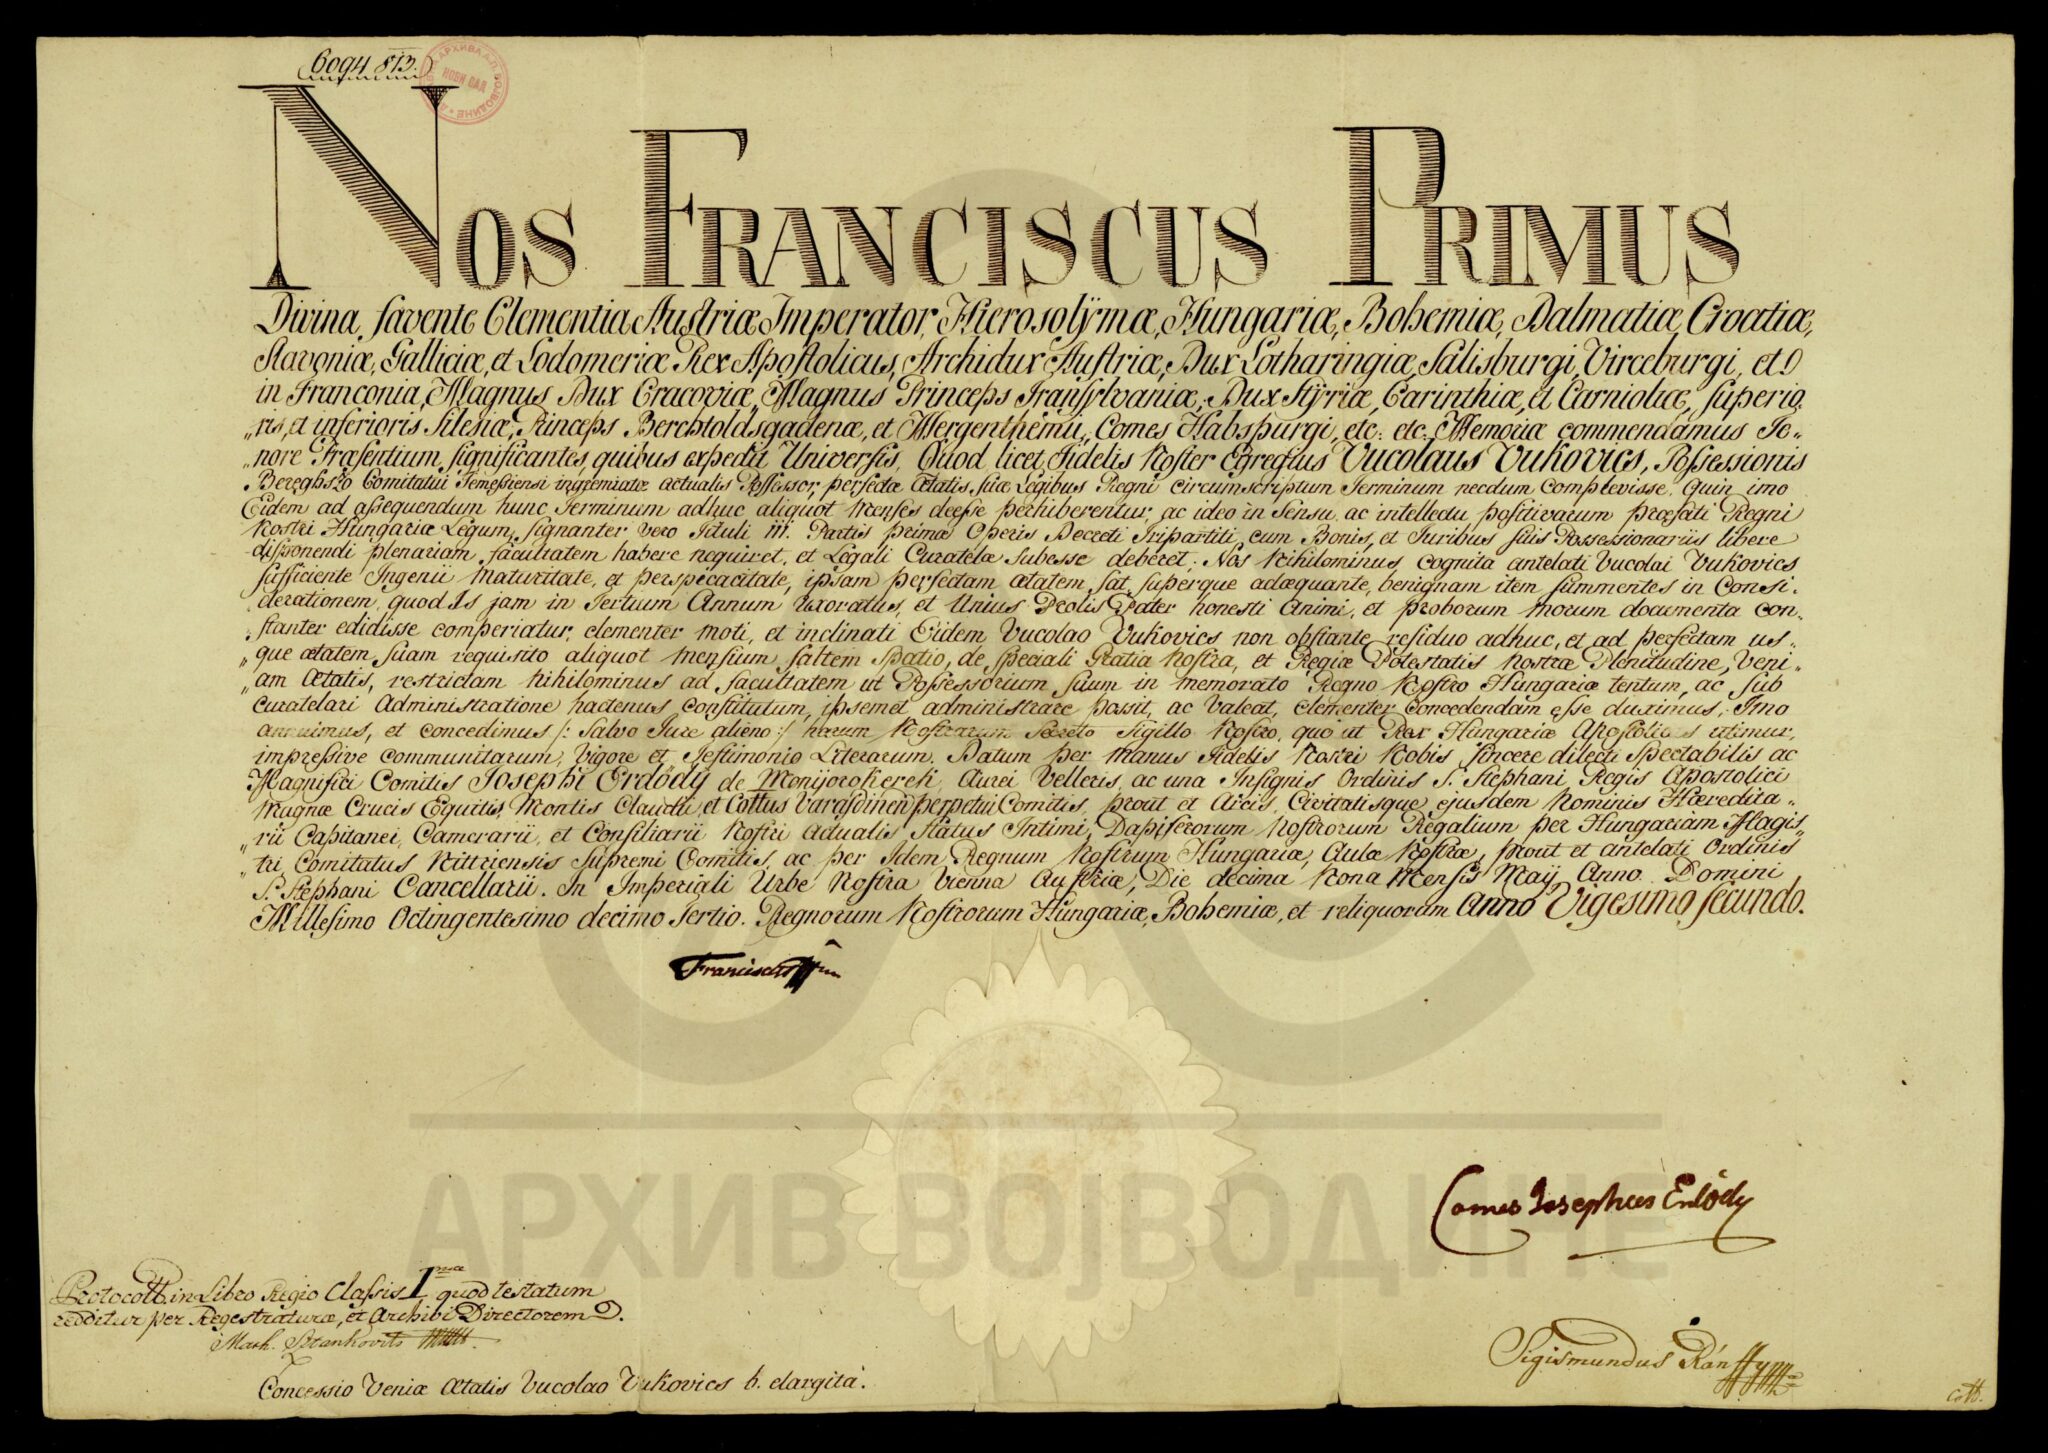 6094 813.
АРХИВА А.П. ВОЈВОДИНЕ
НОВИ САД
NOS FRANCISCUS PRIMUS
Divina favente Clementia Austriæ Imperator, Hierosolÿmæ, Hungariæ, Bohemiæ, Dalmatiæ Croatiæ,
Slavoniæ, Galliciæ, et Lodomeriæ Rex Apostolicus, Archidux Austriæ, Dux Lotharingiæ, Salisburgi, Virceburgi, et
in Franconia, Magnus Dux Cracoviæ, Magnus Princeps Transylvaniæ, Dux Stÿriæ, Carinthiæ, et Carnioliæ, superio„
„ris, et inferioris Silesiæ, Princeps Berchtoldsgadenæ, et Mergenthemii, Comes Habspurgi, etc: etc: Memoriæ commendamus Te„
„nore Præsentium significantes, quibus expedit Universis, Quod licet Fidelis Noster Egregius Vucolaus Vukovics, Possessionis
Bereghszo Comitatui Temessiensi ingremiatæ actualis Possessor, perfectæ Ætatis suæ Legibus Regni circumscriptum Terminum necdum complevisse, Quin imo
Eidem ad assequendum hunc Terminum adhuc aliquot Menses deesse perhiberentur, ac ideo in Sensu, ac intellectu positivarum præfati Regni
Nostri Hungariæ Legum, signanter vero Tituli III. Partis primæ Operis Decreti Tripartiti, cum Bonis, et Juribus suis Possessionariis libere
disponendi plenariam facultatem habere nequiret, et Legali Curatelæ subesse deberet; Nos Nihilominus cognita antelati Vucolai Vukovics
sufficiente Ingenii maturitate, et perspicacitate, ipsam perfectam ætatem sat superque adæquante, benignam item summentes in Consi„
derationem, quod Is jam in Tertium Annum Uxoratus, et Unius Prolis Pater honesti Animi, et proborum morum documenta con„
„stanter edidisse comperiatur, clementer moti, et inclinati Eidem Vucolao Vukovics non obstante residuo adhuc, et ad perfectam us„
„que ætatem suam requisito aliquot mensium saltem spatio, de speciali Gratia Nostra, et Regiæ Potestatis Nostræ Plenitudine, Veni„
„am Ætatis, restrictam nihilominus ad facultatem ut Possessorium suum in memorato Regno Nostro Hungariæ tentum, ac sub
curatelari Administratione hactenus constitutum, ipsemet administrare possit, ac valeat, clementer concedendam esse duximus; Imo
annuimus, et concedimus /: Salvo Jure alieno :/ harum Nostrarum Secreto Sigillo Nostro, quo ut Rex Hungariæ Apostolicus utimur,
impressive communitarum, Vigore et Testimonio Literarum. Datum per Manus Fidelis Nostri Nobis sincere dilecti Spectabilis ac
Magnifici Comitis Josephi Erdődÿ de Monijorokerek, Aurei Velleris, ac una Insignis Ordinis S. Stephani Regis Apostolici
Magnæ Crucis Equitis, Montis Claudii, et Cottus Varasdinen perpetui Comitis, prout et Arcis, Civitatisque ejusdem Nominis Hæredita„
„rii Capitanei, Camerarii, et Consiliarii Nostri Actualis Status Intimi, Dapiferorum Nostrorum Regalium per Hungariam Magis„
„tri, Comitatus Nittriensis Supremi Comitis, ac per Idem Regnum Nostrum Hungariæ, Aulæ Nostræ, prout et antelati Ordinis
S. Stephani Cancellarii. In Imperiali Urbe Nostra Vienna Austriæ, Die decima Nona Mensis Maÿ Anno Domini
Millesimo Octingentesimo decimo Tertio. Regnorum Nostrorum Hungariæ, Bohemiæ, et reliquorum Anno Vigesimo secundo.
Franciscus
АРХИВ ВОЈВОДИНЕ
Comes Josephus Erdődy
Protocoll. in Libro Regio Classis Imæ quod testatum
redditur per Regestraturæ, et Archivi Directorem
Math. Sztankovits
Sigismundus Bánffy
Concessio Veniæ Ætatis Vucolao Vukovics b. elargita.